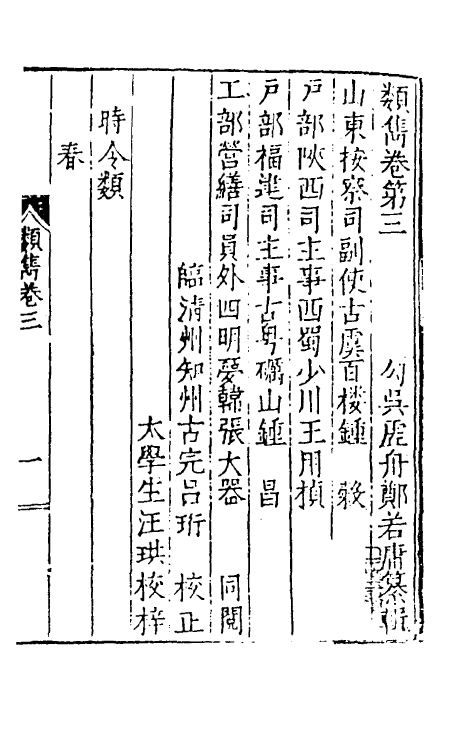 類雋卷第三
勾吳虛舟鄭若庸纂輯
山東按察司副使古虞百樓鍾 穀
戶部陝西司主事西蜀少川王用楨
戶部福建司主事古粵礪山鍾 昌
工部營繕司員外四明夢韓張大器 同閱
臨清州知州古完呂珩 校正
太學生汪珙校梓
時令類
春
類雋卷三
一